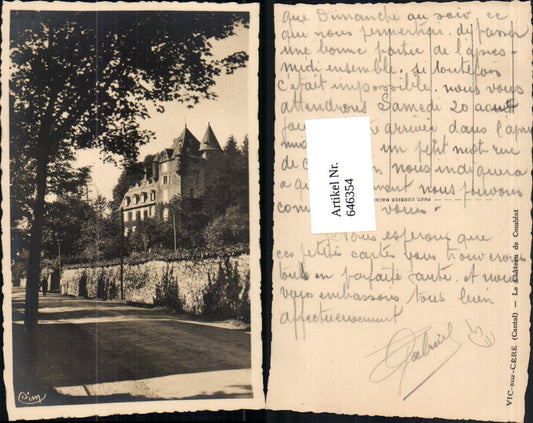 Cim
que Dimanche au soir ce
qui nous permettra di passer
une bonne partie de l'après-
midi ensemble. si toutefois
c'était impossible, nous vous
attendrons Samedi 20 août
arriver dans l'après
un petit mot rue
de nous indiquera
a nous pouvons
vous.
Nous esperons que
ces petites cartes vous trouverons
tous en parfaite santé. et nous
vous embrassons tous bien
affectueusement
Gabriel
Artikel Nr.
646354
PHOT. COMBIER MACON
VIC-sur-CÈRE (Cantal) — Le Château de Comblat